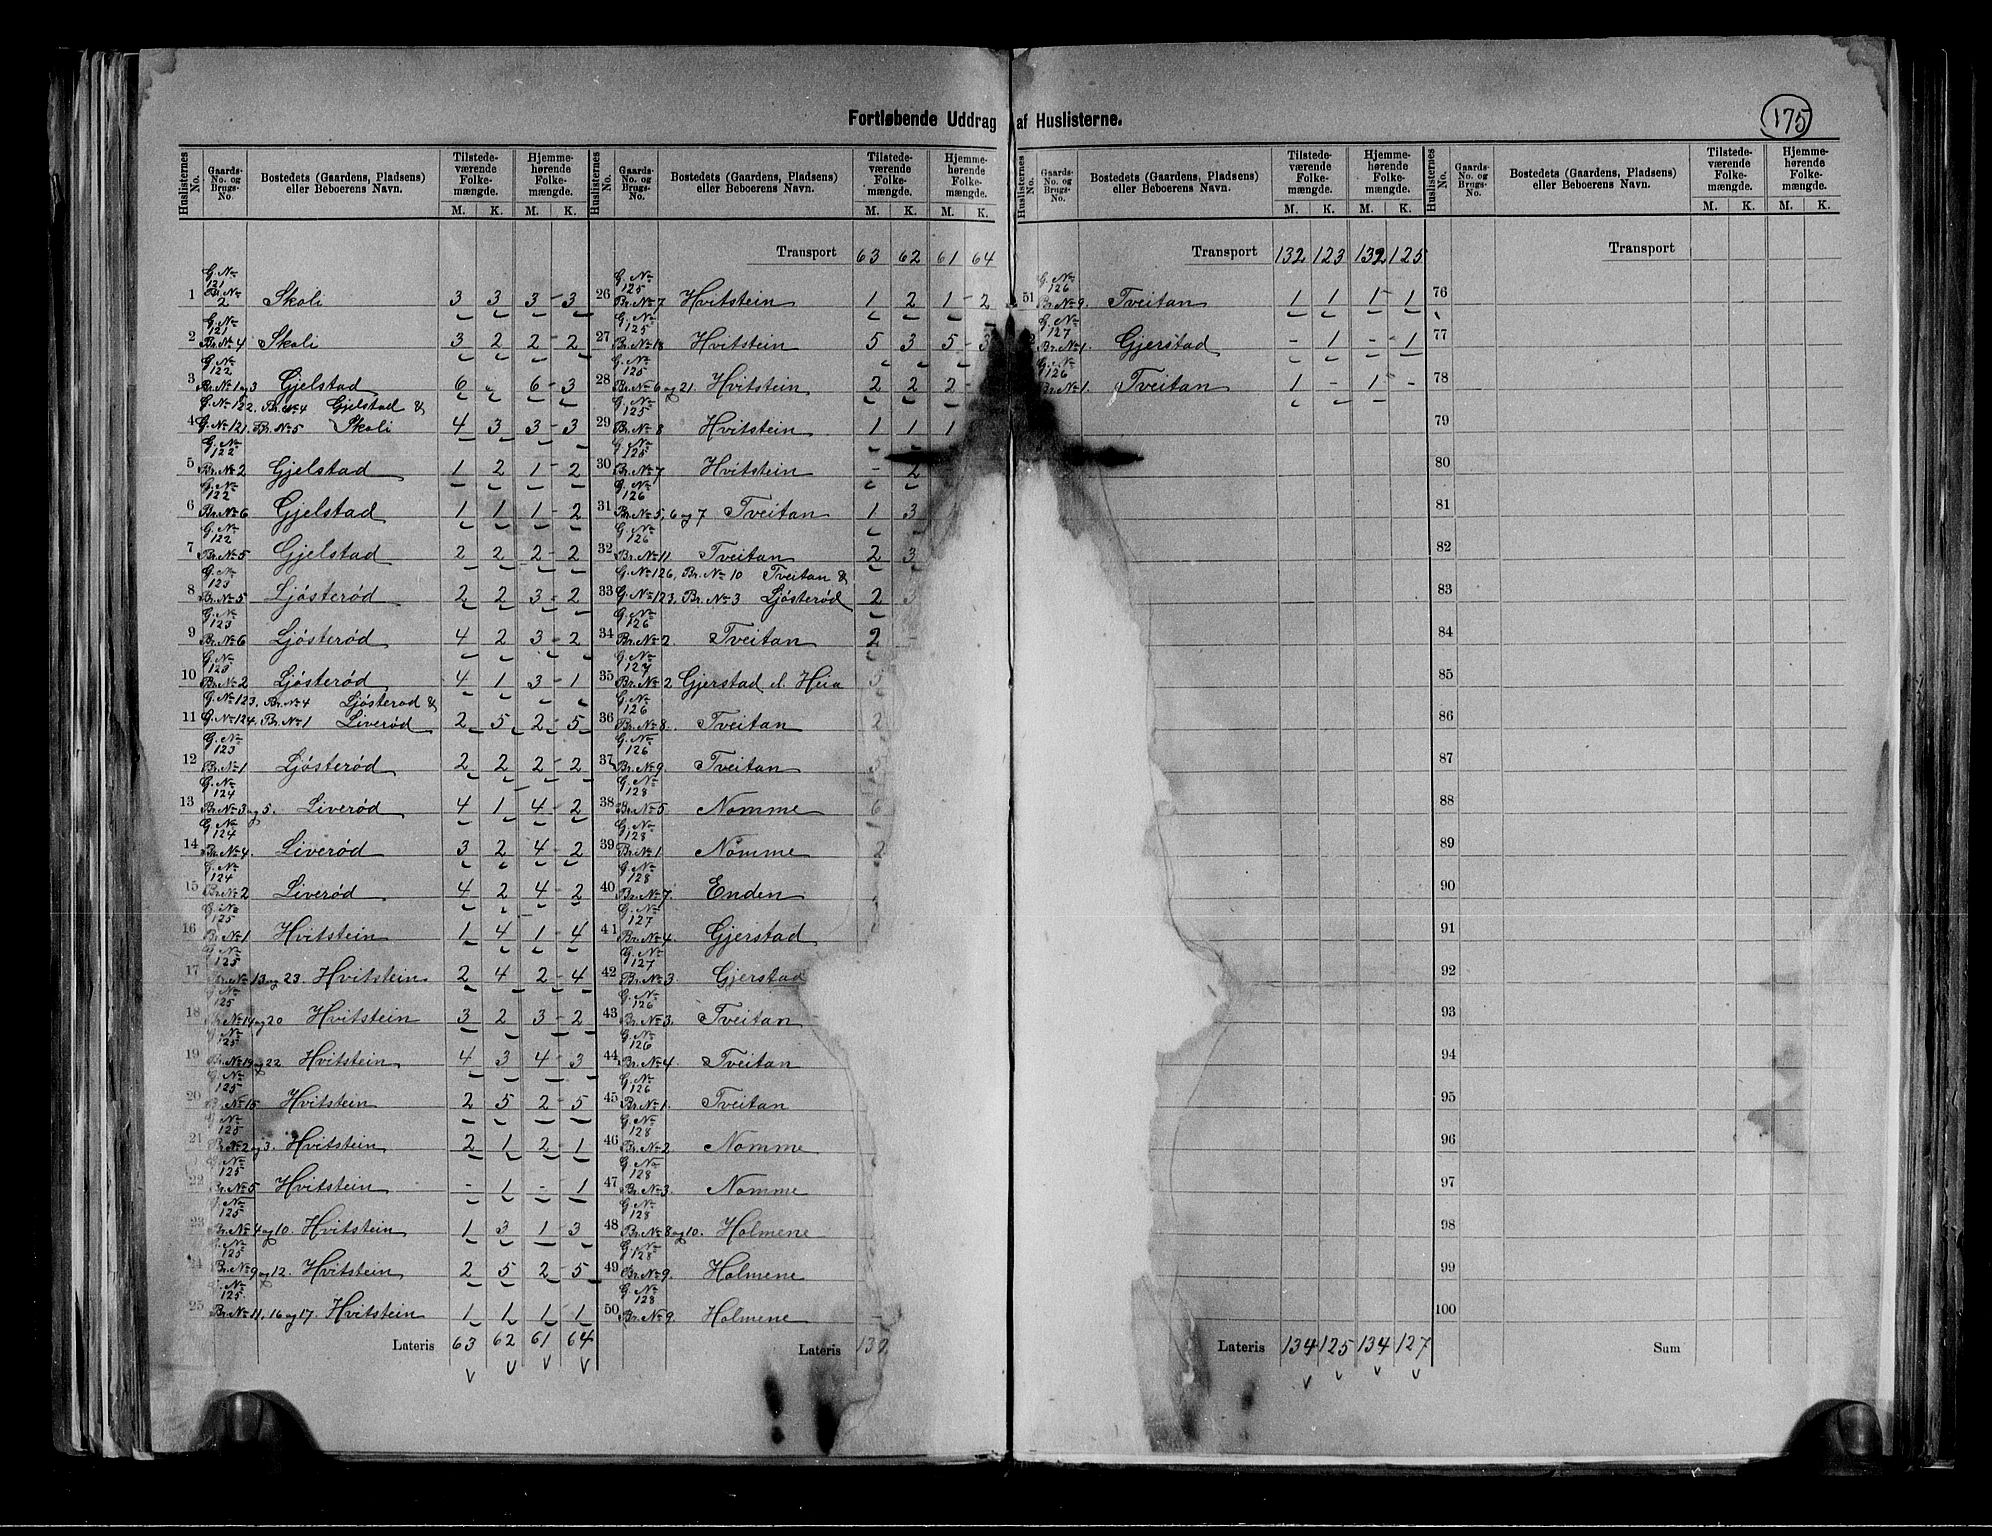 Fortløbende Uddrag af Huslisterne.
175
Huslisternes No. | Gaards-No. og Brugs-No. | Bostedets (Gaardens, Pladsens) eller Beboerens Navn. | Tilstedeværende Folkemængde. M. K. | Hjemmehørende Folkemængde. M. K.
1 G. No 121 Br. No 2 Skoli 3 3 3 - 3
2 G. No 121 Br. No 4 Skoli 3 2 2 - 2
3 G. No 122 Br. No 1 og 3 Gjelstad 6 6 - 3
4 G. No 122, Br. No 4 Gjelstad &
G. No 121, Br. No 5 Skoli 4 3 3 - 3
5 G. No 122 Br. No 2 Gjelstad 1 2 1 - 2
6 G. No 122 Br. No 6 Gjelstad 1 1 1 - 2
7 G. No 122 Br. No 5 Gjelstad 2 2 2 - 2
8 G. No 123 Br. No 5 Ljösteröd 2 2 3 - 2
9 G. No 123 Br. No 6 Ljösteröd 4 2 3 - 2
10 G. No 123 Br. No 2 Ljösteröd 4 1 3 - 1
11 G. No 123, Br. No 4 Ljösteröd &
G. No 124, Br. No 1 Liveröd 2 5 2 - 5
12 G. No 123 Br. No 1 Ljösteröd 2 2 2 - 2
13 G. No 124 Br. No 3 og 5. Liveröd 4 1 4 - 2
14 G. No 124 Br. No 4. Liveröd 3 2 4 - 2
15 G. No 124 Br. No 2 Liveröd 4 2 4 - 2
16 G. No 125 Br. No 1 Hvitstein 1 4 1 - 4
17 G. No 125 Br. No 13 og 23. Hvitstein 2 4 2 - 4
18 G. No 125 Br. No 14 og 20 Hvitstein 3 2 3 - 2
19 G. No 125 Br. No 19 og 22 Hvitstein 4 3 4 - 3
20 G. No 125 Br. No 15 Hvitstein 2 5 2 - 5
21 G. No 125 Br. No 2 og 3. Hvitstein 2 1 2 - 1
22 G. No 125 Br. No 5 Hvitstein - 1 - 1
23 G. No 125 Br. No 4 og 10. Hvitstein 1 3 1 3
24 G. No 125 Br. No 9 og 12. Hvitstein 2 5 2 - 5
25 G. No 125 Br. No 11, 16 og 17. Hvitstein 1 1 1 - 1
Lateris 63 62 61 64
Huslisternes No. | Gaards-No. og Brugs-No. | Bostedets (Gaardens, Pladsens) eller Beboerens Navn. | Tilstedeværende Folkemængde. M. K. | Hjemmehørende Folkemængde. M. K.
Transport 63 62 61 64
26 G. No 125 Br. No 7 Hvitstein 1 2 1 - 2
27 G. No 125 Br. No 18 Hvitstein 5 3 5 - 3
28 G. No 125 Br. No 6 og 21. Hvitstein 2 2 2 -
29 G. No 125 Br. No 8 Hvitstein 1 1 1
30 G. No 125 Br. No 7 Hvitstein - 2
31 G. No 126 Br. No 5, 6 og 7 Tveitan 1 3
32 G. No 126 Br. No 11. Tveitan 2 3
33 G. No 126, Br. No 10 Tveitan &
G. No 123, Br. No 3 Ljösteröd 2 3
34 G. No 126 Br. No 2. Tveitan 2
35 G. No 127 Br. No 2 Gjerstad el. Heia
36 G. No 126 Br. No 8. Tveitan 2
37 G. No 126 Br. No 9. Tveitan
38 G. No 128 Br. No 5 Nomme 6
39 G. No 128 Br. No 1 Nomme 2
40 G. No 128 Br. No 7. Enden
41 G. No 127 Br. No 4. Gjerstad
42 G. No 127 Br. No 3. Gjerstad
43 G. No 126 Br. No 3. Tveitan
44 G. No 126 Br. No 4. Tveitan
45 G. No 126 Br. No 1. Tveitan
46 G. No 128 Br. No 2 Nomme
47 G. No 128 Br. No 3. Nomme
48 G. No 128 Br. No 8 og 10. Holmene
49 G. No 128 Br. No 9. Holmene
50 G. No 128 Br. No 9. Holmene
Lateris 132
Huslisternes No. | Gaards-No. og Brugs-No. | Bostedets (Gaardens, Pladsens) eller Beboerens Navn. | Tilstedeværende Folkemængde. M. K. | Hjemmehørende Folkemængde. M. K.
Transport 132 123 132 125
51 G. No 126 Br. No 9. Tveitan 1 1 1 - 1
2 G. No 127 Br. No 1. Gjerstad - 1 - 1
G. No 126 Br. No 1. Tveitan 1 - 1 -
Lateris 134 125 134 127
Huslisternes No. | Gaards-No. og Brugs-No. | Bostedets (Gaardens, Pladsens) eller Beboerens Navn. | Tilstedeværende Folkemængde. M. K. | Hjemmehørende Folkemængde. M. K.
Transport
76
77
78
79
80
81
82
83
84
85
86
87
88
89
90
91
92
93
94
95
96
97
98
99
100
Sum